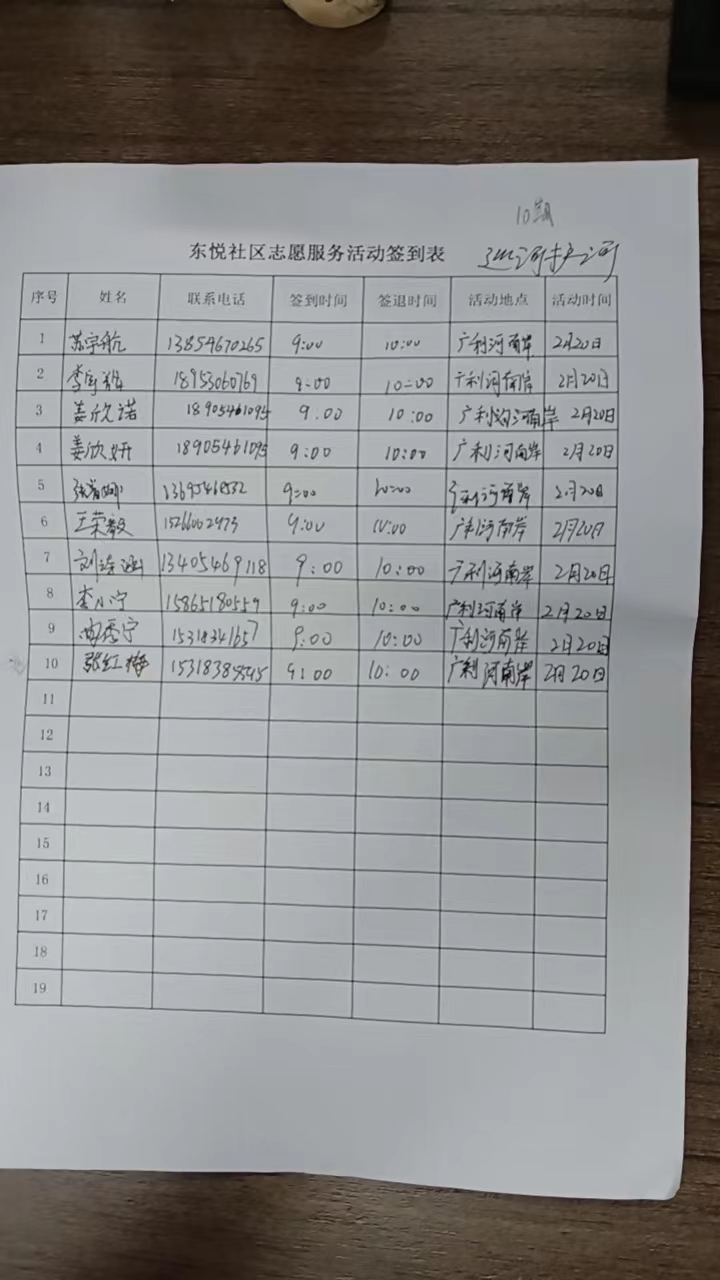 10期
东悦社区志愿服务活动签到表 巡河护河
序号 姓名 联系电话 签到时间 签退时间 活动地点 活动时间
1 苏宇航 13854670265 9:00 10:00 广利河南岸 2月20日
2 李宇 18953060769 9:00 10:00 广利河南岸 2月20日
3 姜欣诺 18905461095 9.00 10:00 广利河南岸 2月20日
4 姜欣妍 18905461095 9:00 10:00 广利河南岸 2月20日
5 9:00 10:00 广利河南岸 2月20日
6 王荣毅 15266002473 9:00 10:00 广利河南岸 2月20日
7 刘 13405469118 9:00 10:00 广利河南岸 2月20日
8 李小宁 15865180559 9:00 10:00 广利河南岸 2月20日
9 宁 15318341657 9:00 10:00 广利河南岸 2月20日
10 张红梅 9:00 10:00 广利河南岸 2月20日
11
12
13
14
15
16
17
18
19